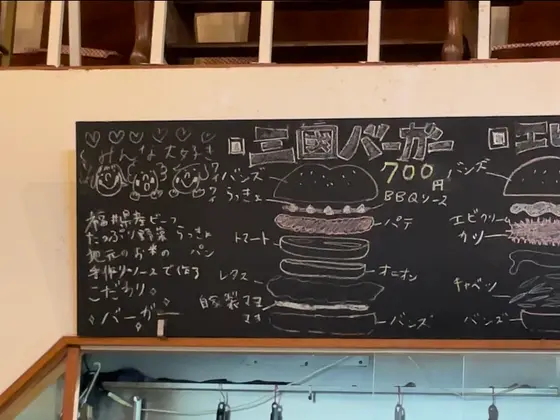 みんな大好き
福井県寿ビーフ
たっぷり野菜 らっきょ
地元のお米の パン
手作りソースで作る
こだわり
バーガー
三國バーガー
700円
BBQソース
バンズ
らっきょ
パテ
トマト
オニオン
レタス
自家製マヨ
バンズ
エビ
バンズ
エビクリーム
カツ
キャベツ
バンズ